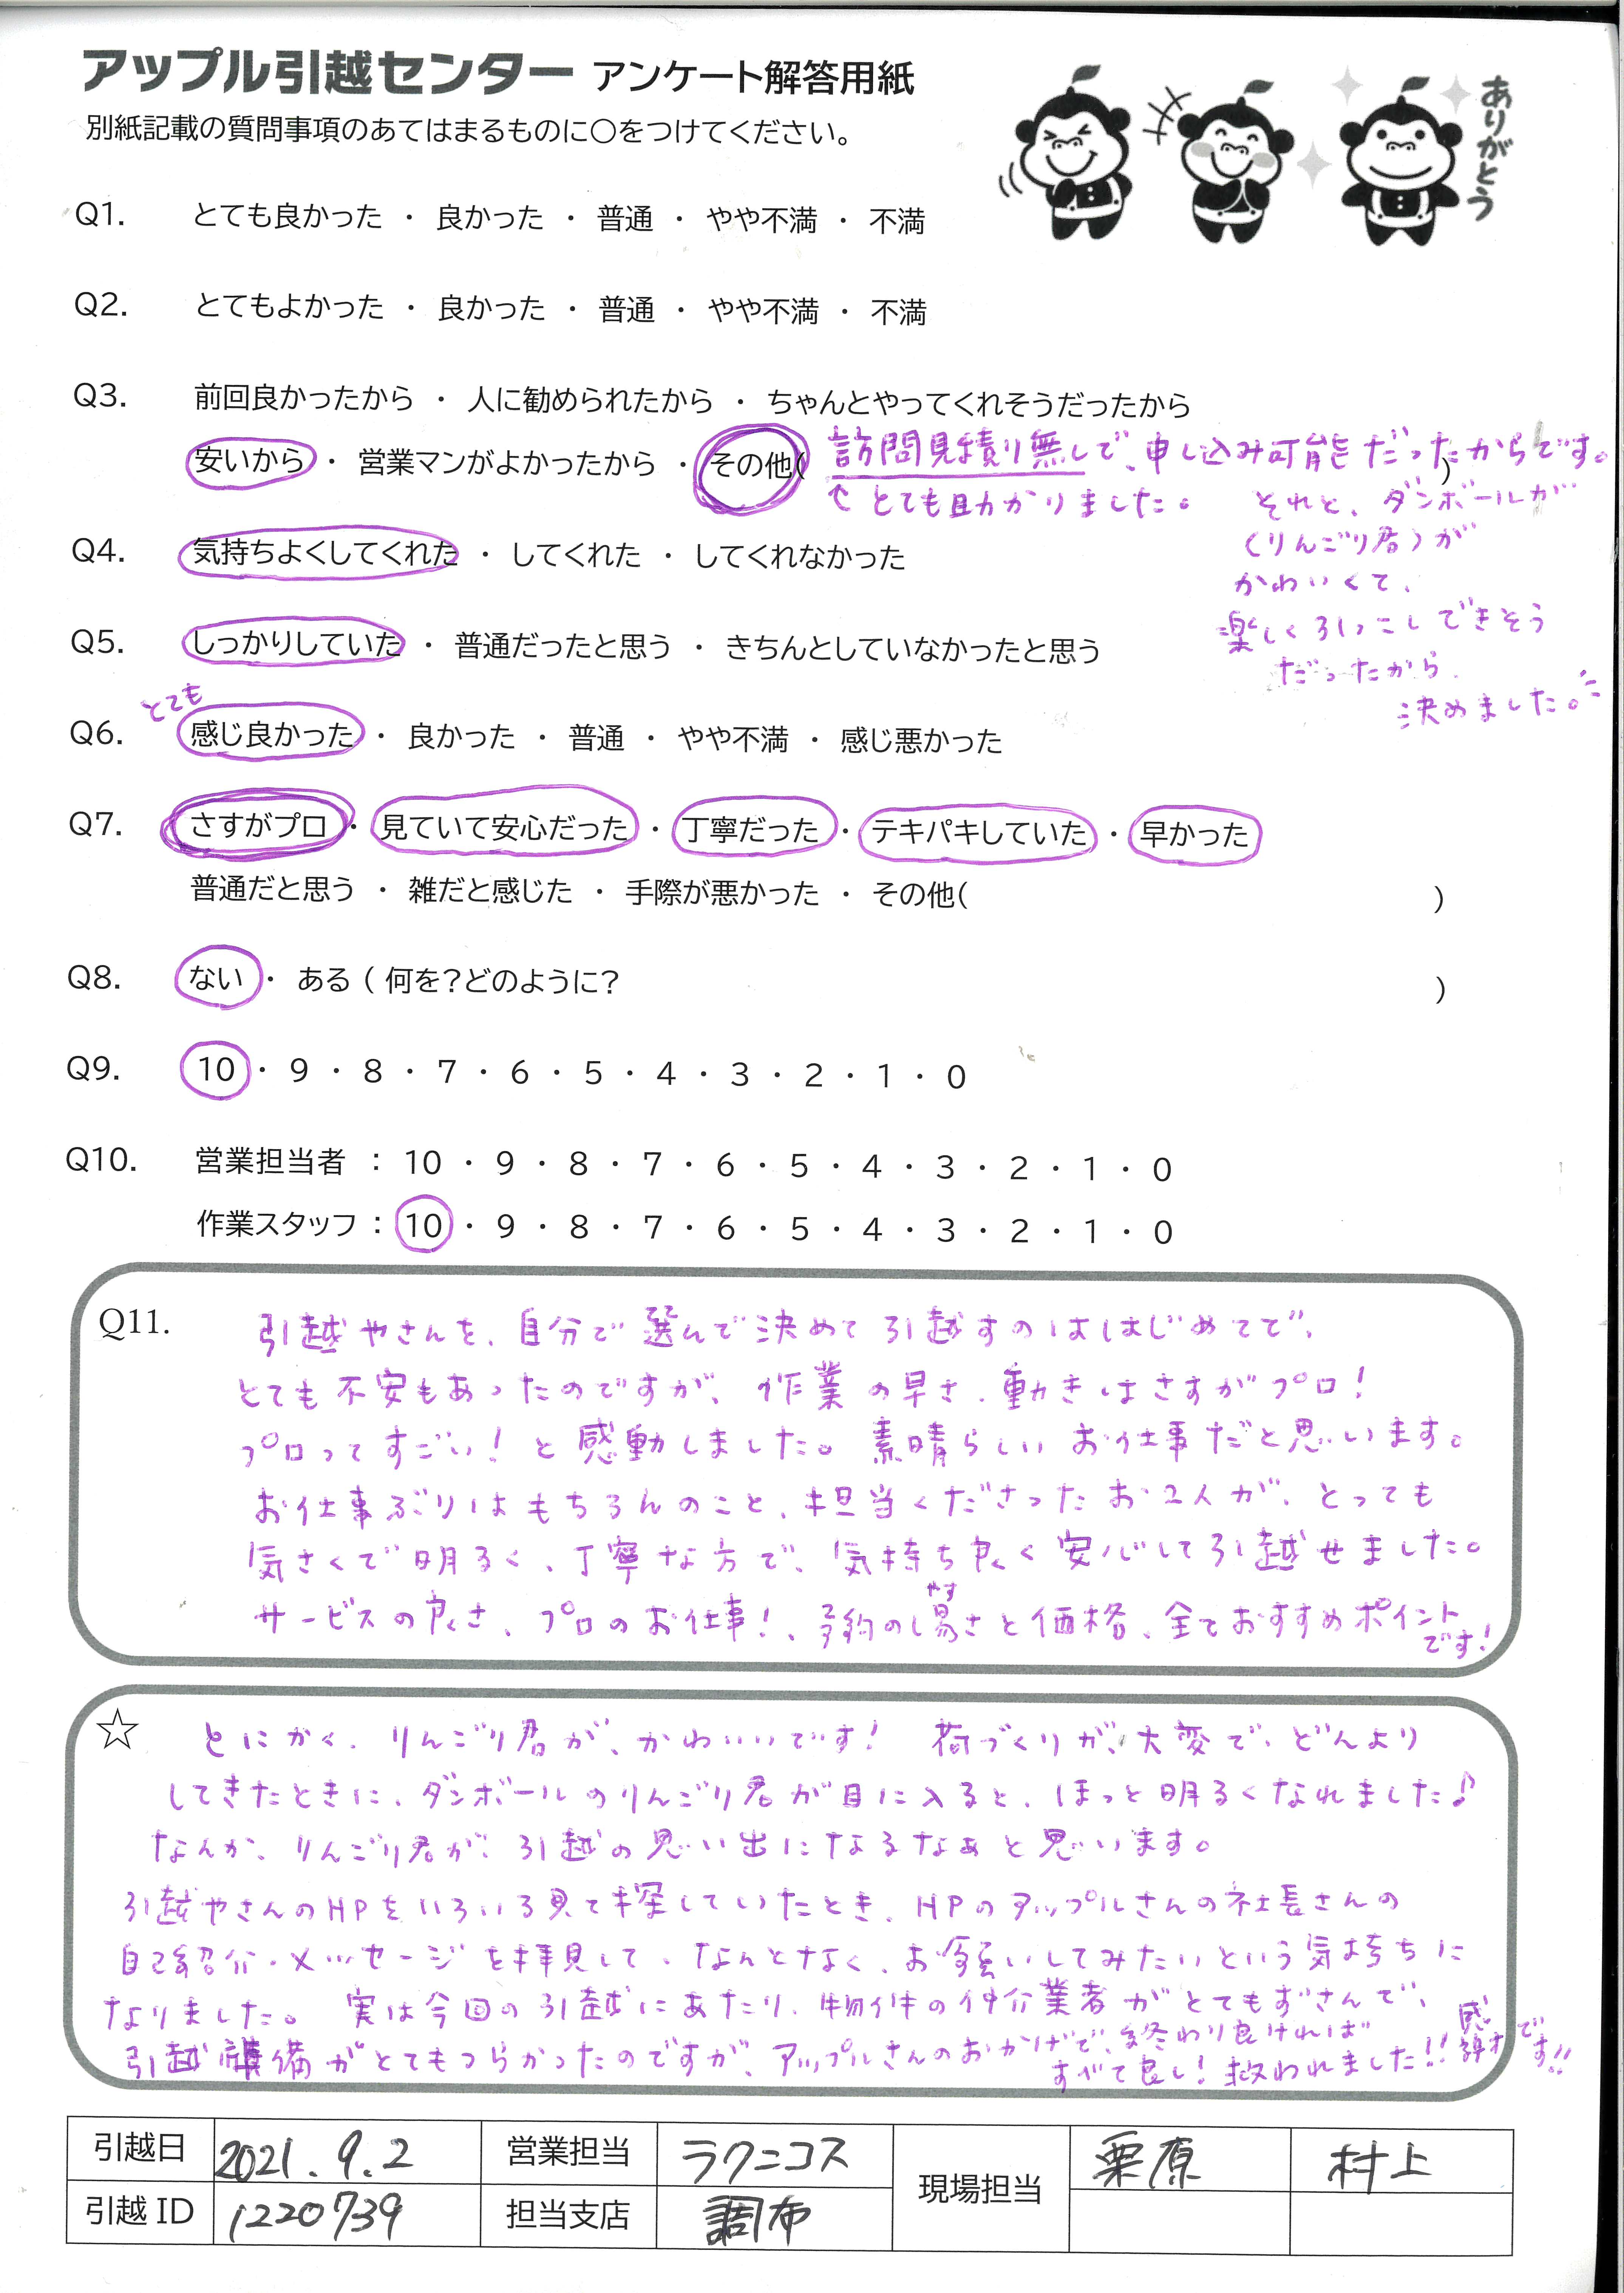 アップル引越センター アンケート解答用紙
ありがとう
別紙記載の質問事項のあてはまるものに○をつけてください。
Q1. とても良かった ・ 良かった ・ 普通 ・ やや不満 ・ 不満
Q2. とてもよかった ・ 良かった ・ 普通 ・ やや不満 ・ 不満
Q3. 前回良かったから ・ 人に勧められたから ・ ちゃんとやってくれそうだったから
安いから ・ 営業マンがよかったから ・ その他( 訪問見積り無しで、申し込み可能だったからです。 )
↑とても助かりました。 それと、ダンボールが
(りんごり君)が
かわいくて、
楽しくひっこしできそう
だったから
決めました。
Q4. 気持ちよくしてくれた ・ してくれた ・ してくれなかった
Q5. しっかりしていた ・ 普通だったと思う ・ きちんとしていなかったと思う
とても
Q6. 感じ良かった ・ 良かった ・ 普通 ・ やや不満 ・ 感じ悪かった
Q7. さすがプロ ・ 見ていて安心だった ・ 丁寧だった ・ テキパキしていた ・ 早かった
普通だと思う ・ 雑だと感じた ・ 手際が悪かった ・ その他( )
Q8. ない ・ ある ( 何を?どのように? )
Q9. 10 ・ 9 ・ 8 ・ 7 ・ 6 ・ 5 ・ 4 ・ 3 ・ 2 ・ 1 ・ 0
Q10. 営業担当者 : 10 ・ 9 ・ 8 ・ 7 ・ 6 ・ 5 ・ 4 ・ 3 ・ 2 ・ 1 ・ 0
作業スタッフ : 10 ・ 9 ・ 8 ・ 7 ・ 6 ・ 5 ・ 4 ・ 3 ・ 2 ・ 1 ・ 0
Q11. 引越やさんを、自分で選んで決めて引越すのははじめてで、
とても不安もあったのですが、作業の早さ、動きはさすがプロ!
プロってすごい!と感動しました。素晴らしいお仕事だと思います。
お仕事ぶりはもちろんのこと、担当くださったお2人が、とっても
気さくで明るく、丁寧な方で、気持ち良く安心して引越せました。
やす
サービスの良さ、プロのお仕事!、予約の易さと価格、全ておすすめポイント
です!
☆ とにかく、りんごり君が、かわいいです! 荷づくりが、大変で、どんより
してきたときに、ダンボールのりんごり君が目に入ると、ほっと明るくなれました♪
なんか、りんごり君が、引越の思い出になるなぁと思います。
引越やさんのHPをいろいろ見て探していたとき、HPのアップルさんの社長さんの
自己紹介・メッセージを拝見して、なんとなく、お願いしてみたいという気持ちに
なりました。 実は今回の引越にあたり、物件の仲介業者がとてもずさんで、
引越準備がとてもつらかったのですが、アップルさんのおかげで、終わり良ければ
すべて良し!救われました!! 感謝です!!
引越日 2021.9.2 営業担当 ラクニコス 現場担当 栗原 村上
引越ID 1220739 担当支店 調布